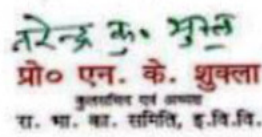 नरेन्द्र कु० शुक्ल
प्रो० एन. के. शुक्ला
कुलसचिव एवं अध्यक्ष
रा. भा. का. समिति, इ.वि.वि.